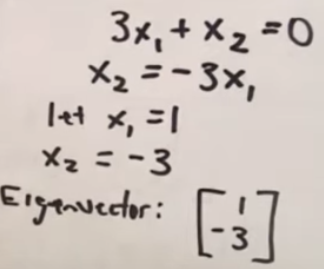 3x₁ + x₂ = 0
x₂ = -3x₁
let x₁ = 1
x₂ = -3
Eigenvector: [1
-3]